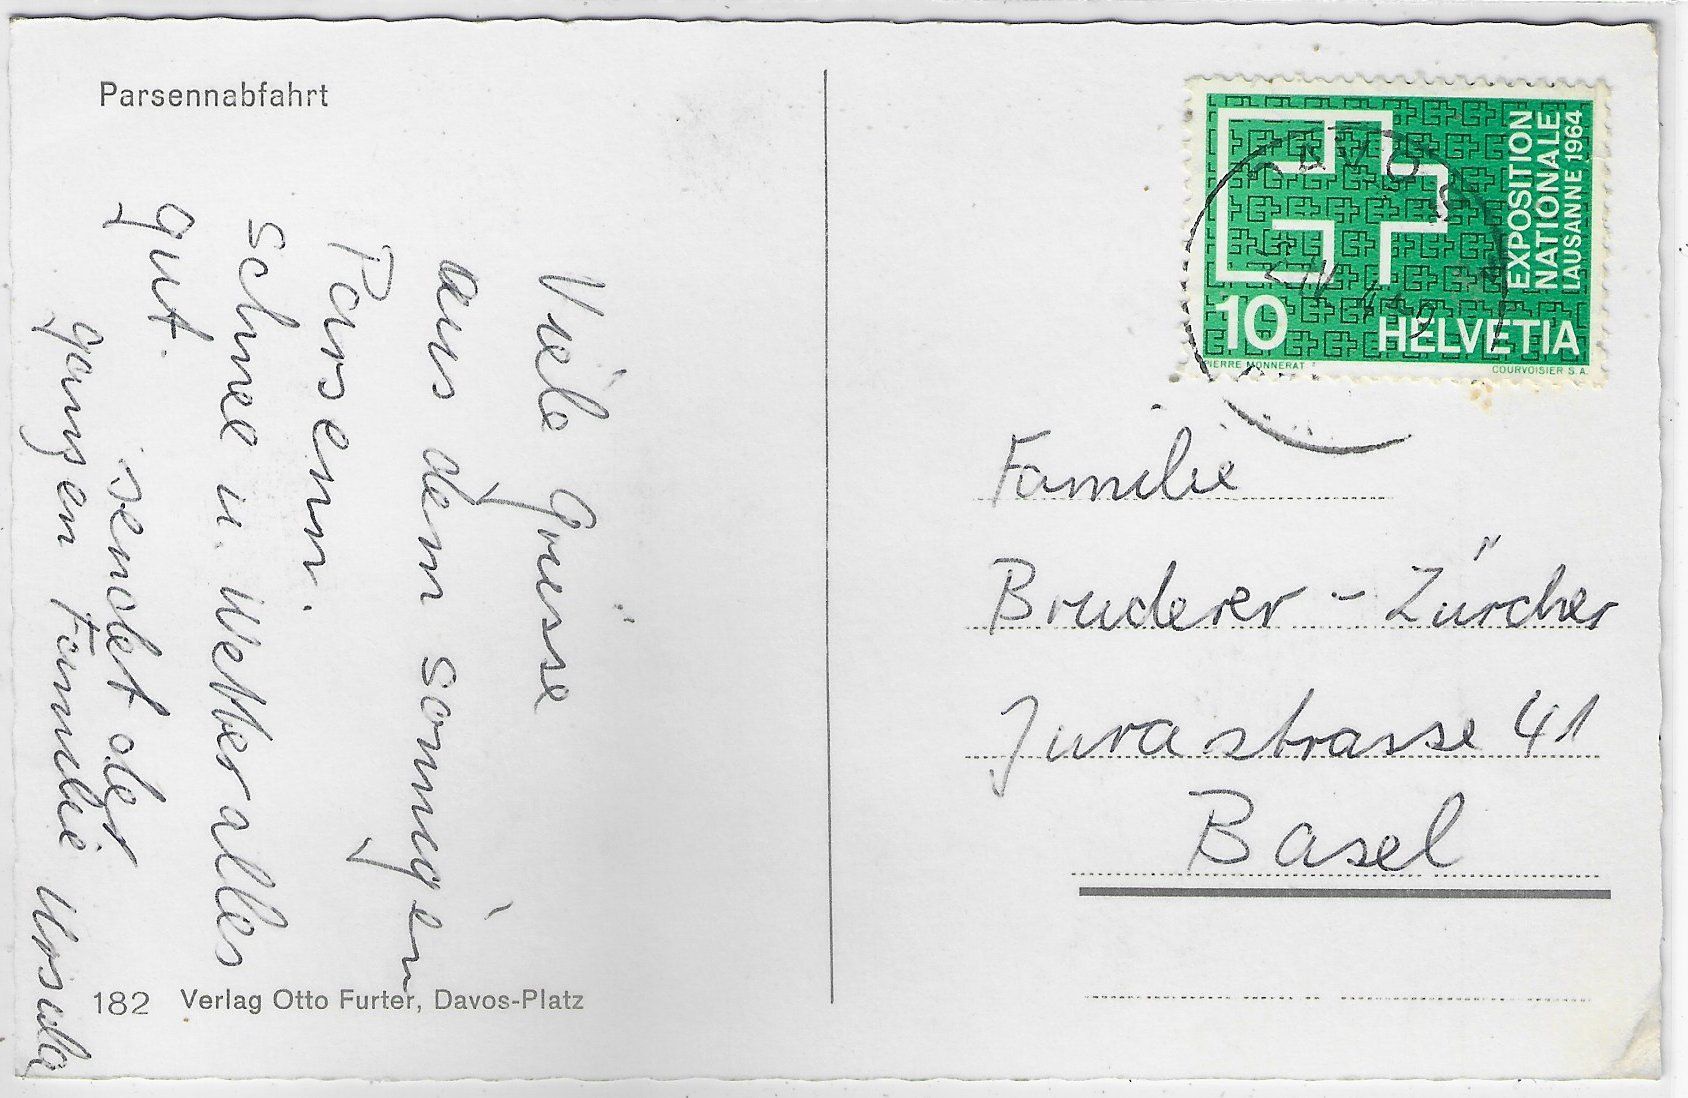 Parsennabfahrt
Viele Grüsse
aus dem sonnigen
Parsenn.
Schnee u. Wetter alles
gut.
sendet der
ganzen Familie Ursula
182 Verlag Otto Furter, Davos-Platz
EXPOSITION
NATIONALE
LAUSANNE 1964
10 HELVETIA
PIERRE MONNERAT
COURVOISIER S.A.
DAVOS
Familie
Bruderer - Zürcher
Jurastrasse 41
Basel